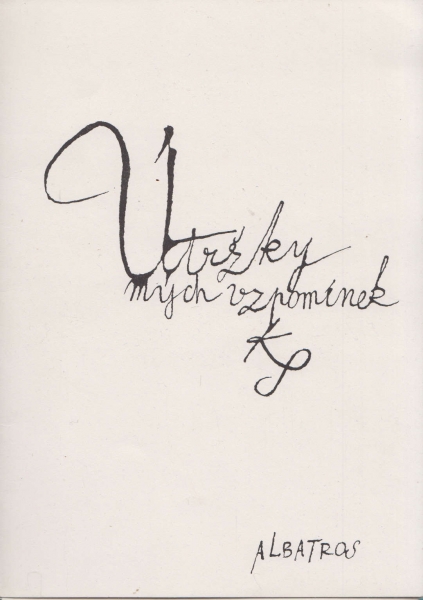 Útržky
mých vzpomínek
K
ALBATROS